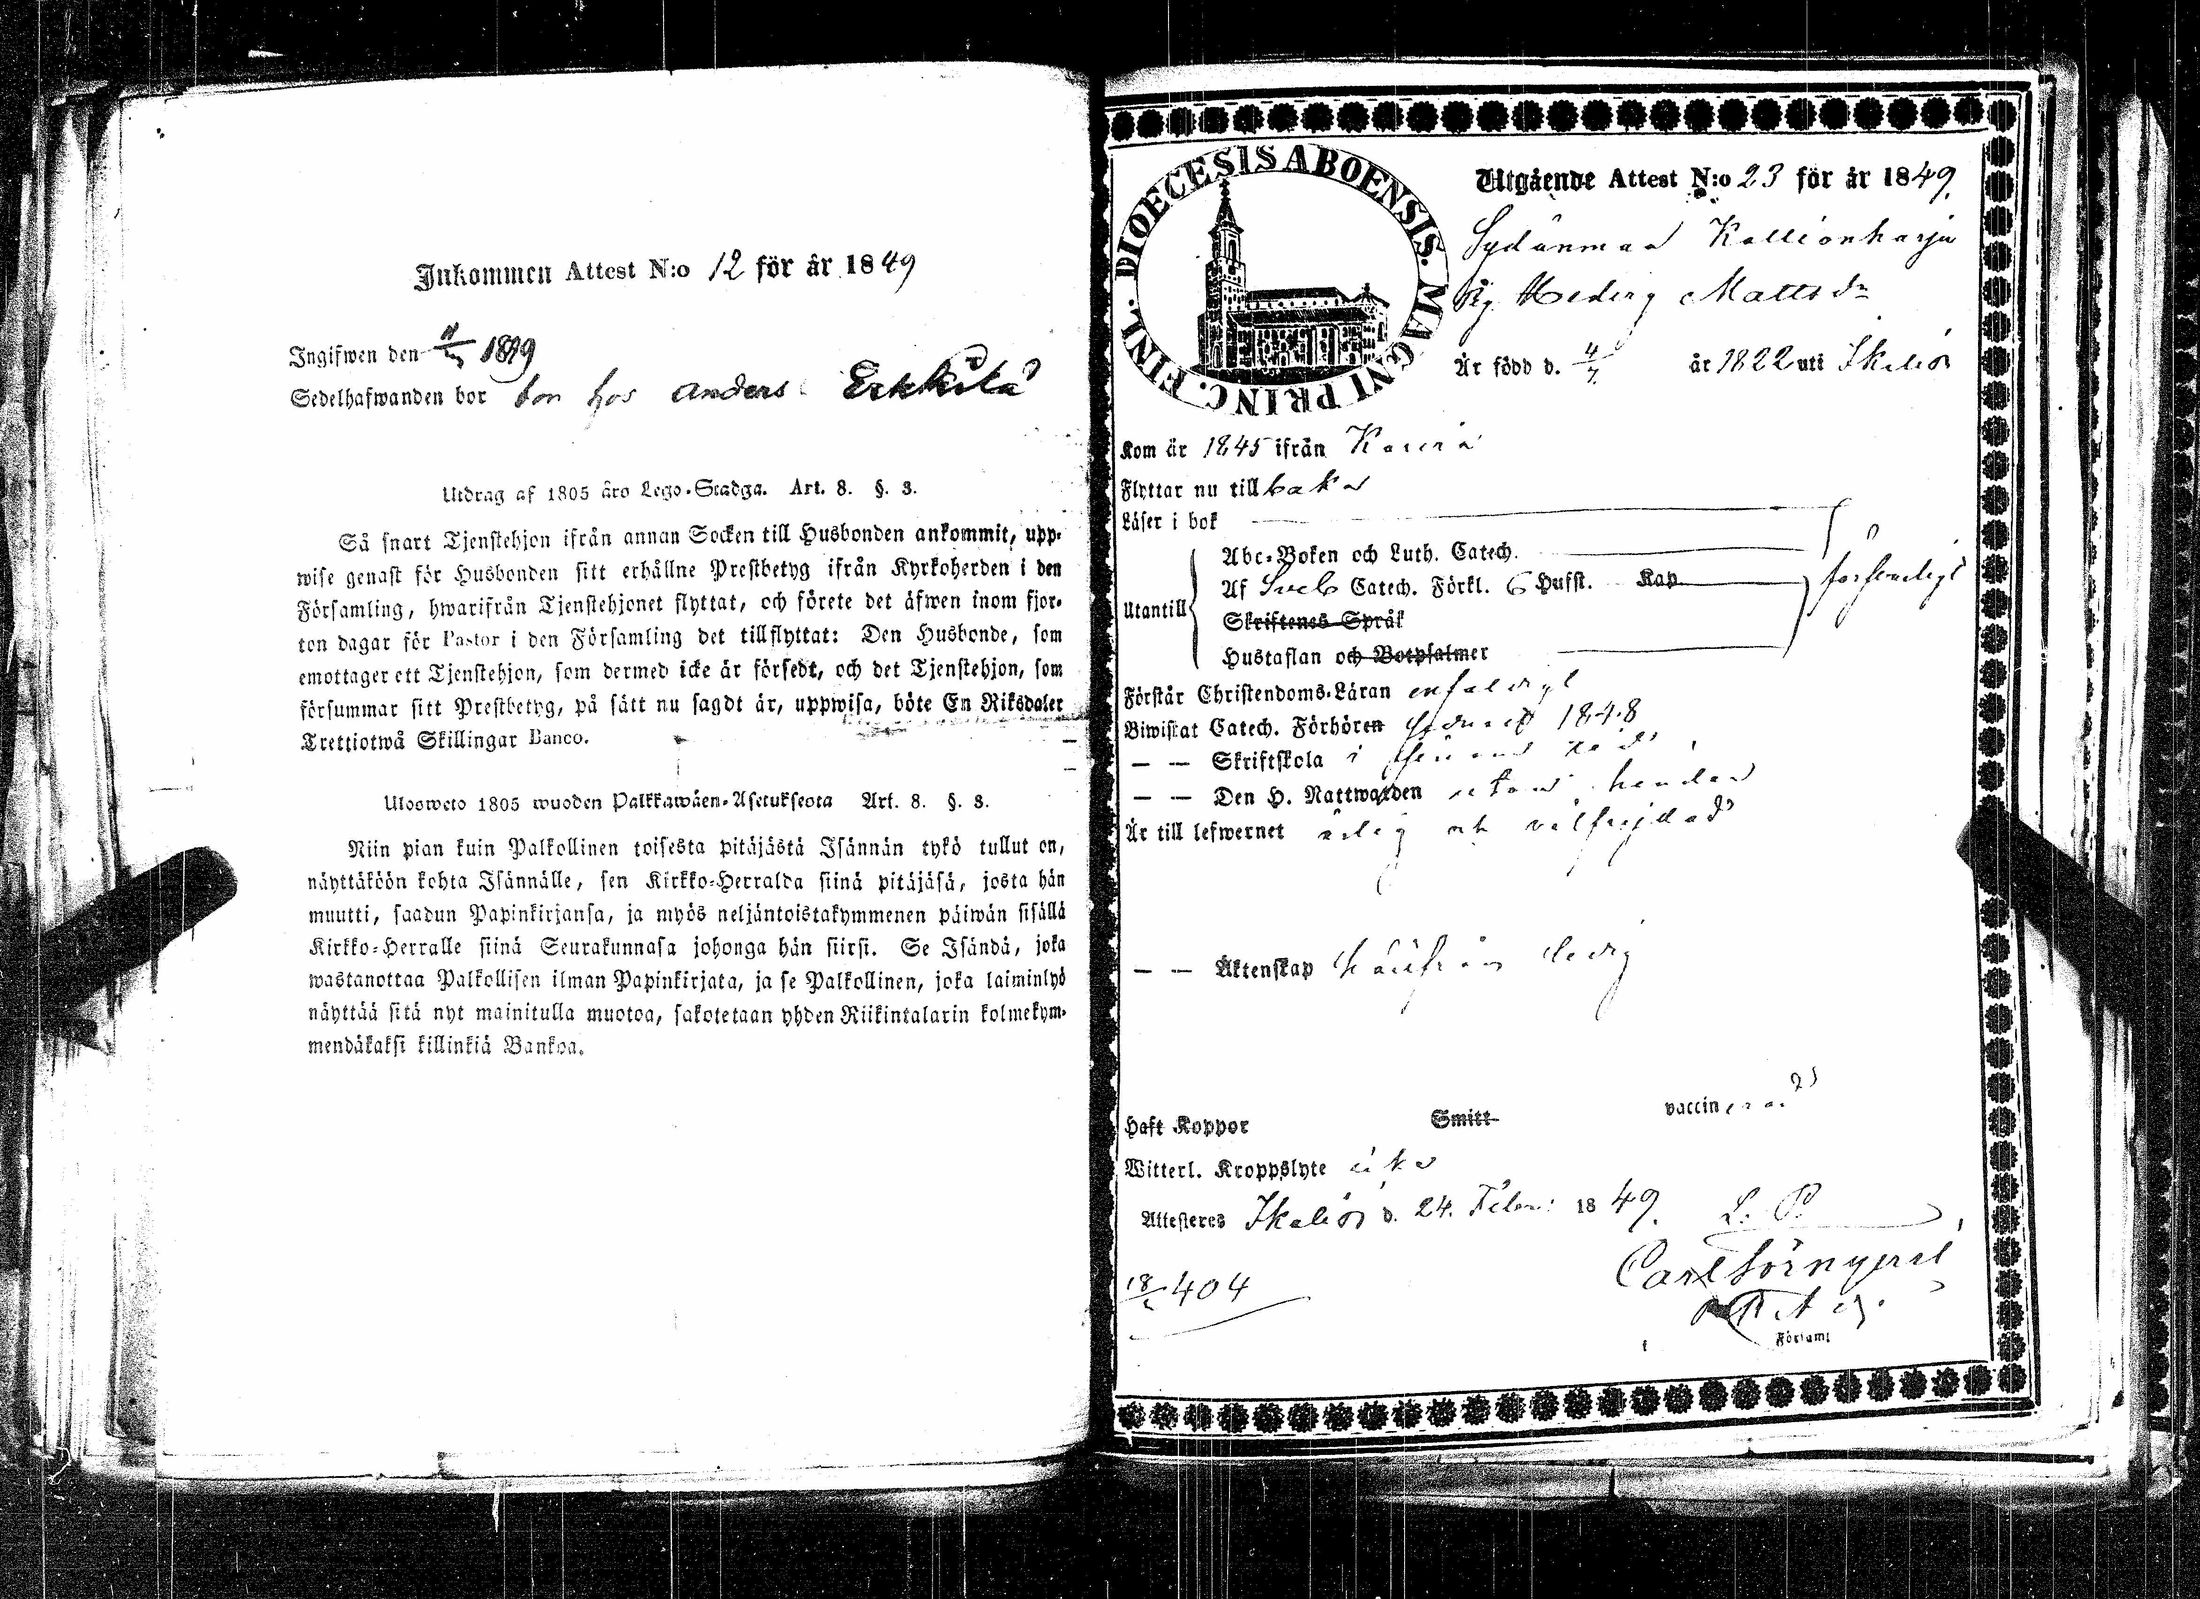 Inkommen Attest N:o 12 för år 1849
Ingifwen den 1849
Sedelhafwanden bor hos Anders Erkkilä
Utdrag af 1805 års Lego-Stadga. Art. 8. §. 3.
Så snart Tjenstehjon ifrån annan Socken till Husbonden ankommit, upp-
wise genast för Husbonden sitt erhållne Prestbetyg ifrån Kyrkoherden i den
Församling, hwarifrån Tjenstehjonet flyttat, och förete det äfwen inom fjor-
ton dagar för Pastor i den Församling det tillflyttat: Den Husbonde, som
emottager ett Tjenstehjon, som dermed icke är försedt, och det Tjenstehjon, som
försummar sitt Prestbetyg, på sätt nu sagdt är, uppwisa, böte En Riksdaler
Trettiotwå Skillingar Banco.
Ulosweto 1805 wuoden Palkkawäen-Asetuksesta Art. 8. §. 3.
Niin pian kuin Palkollinen toisesta pitäjästä Isännän tykö tullut on,
näyttäköön kohta Isännälle, sen Kirkko-Herralda siinä pitäjäsä, josta hän
muutti, saadun Papinkirjansa, ja myös neljäntoistakymmenen päiwän sisällä
Kirkko-Herralle siinä Seurakunnasa johonga hän siirsi. Se Isändä, joka
wastanottaa Palkollisen ilman Papinkirjata, ja se Palkollinen, joka laiminlyö
näyttää sitä nyt mainitulla muotoa, sakotetaan yhden Riikintalarin kolmekym-
mendäkaksi killinkiä Bankoa.
DIOECESIS ABOENSIS. MAGNI PRINC. FINL.
Utgående Attest N:o 23 för år 1849.
Sydänmaa Kallionharju
Pig. Hedvig Mattsdr
Är född d. 4/7 år 1822 uti Ikalis
Kom år 1845 ifrån
Flyttar nu tillbaka
Läser i bok
Abc-Boken och Luth. Catech.
Utantill Af Sveb Catech. Förkl. 6 Hufst. Kap
försvarligt
Skriftenes Språk
Hustaflan och Botpsalmer
Förstår Christendoms-Läran enfaldigt
Biwistat Catech. Förhören 1848
— — Skriftskola i
— — Den H. Nattwarden
Är till lefwernet ärlig och välfrejdad
— — Äktenskap härifrån ledig
Haft Koppor Smitt vaccinerad
Witterl. Kroppslyte
Attesteras Ikalis d. 24. Febr: 1849. L. P.
Carl
404
Församl